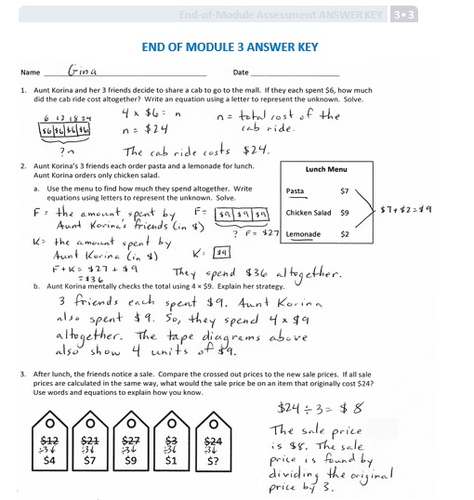 End-of-Module Assessment ANSWER KEY 3•3
END OF MODULE 3 ANSWER KEY
Name Gina Date
1. Aunt Korina and her 3 friends decide to share a cab to go to the mall. If they each spent $6, how much
did the cab ride cost altogether? Write an equation using a letter to represent the unknown. Solve.
6 12 18 24
$6 $6 $6 $6
? n
4 x $6 = n
n = $24
n = total cost of the
cab ride.
The cab ride costs $24.
2. Aunt Korina's 3 friends each order pasta and a lemonade for lunch.
Aunt Korina orders only chicken salad.
a. Use the menu to find how much they spend altogether. Write
equations using letters to represent the unknown. Solve.
Lunch Menu
Pasta $7
Chicken Salad $9
Lemonade $2
$7+$2=$9
F = the amount spent by
Aunt Korina's friends (in $)
F= $9 $9 $9
? F = $27
K= the amount spent by
Aunt Korina (in $)
K= $9
F+K= $27 + $9
=$36
They spend $36 altogether.
b. Aunt Korina mentally checks the total using 4 × $9. Explain her strategy.
3 friends each spent $9. Aunt Korina
also spent $9. So, they spend 4 x $9
altogether. The tape diagrams above
also show 4 units of $9.
3. After lunch, the friends notice a sale. Compare the crossed out prices to the new sale prices. If all sale
prices are calculated in the same way, what would the sale price be on an item that originally cost $24?
Use words and equations to explain how you know.
$12 $21 $27 $3 $24
÷3↓ ÷3↓ ÷3↓ ÷3↓ ÷3↓
$4 $7 $9 $1 $?
$24 ÷ 3 = $8
The sale price
is $8. The sale
price is found by
dividing the original
price by 3.